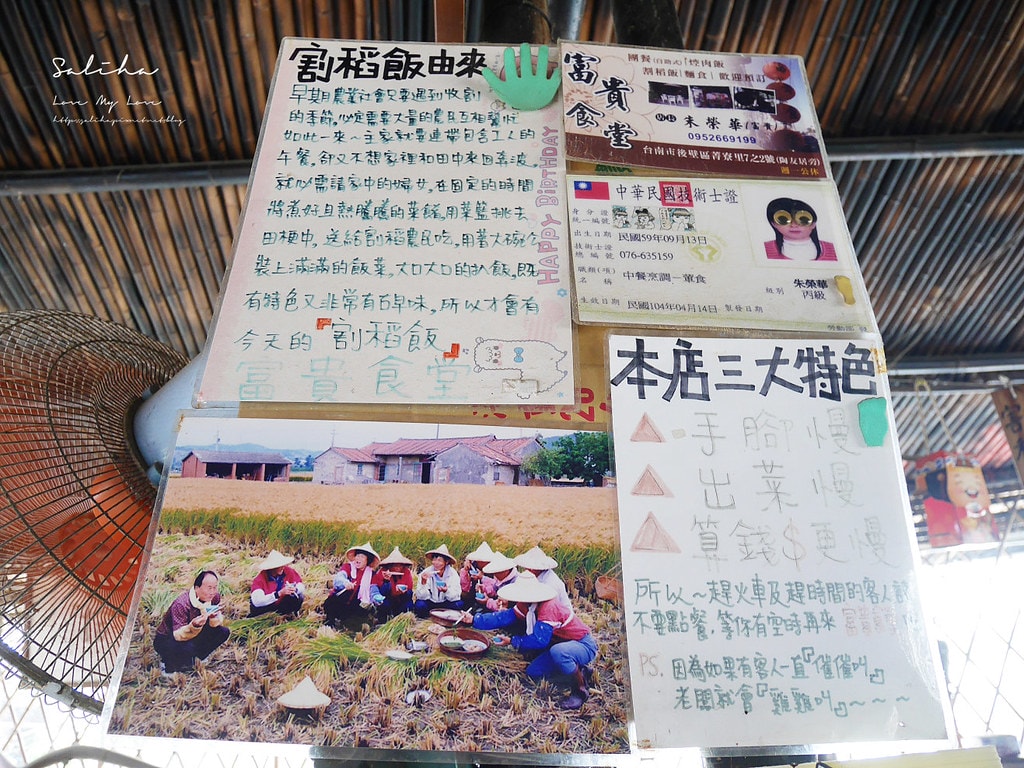 Saliha
Love My Love
割稻飯由來
早期農業社會只要遇到收割
的季節,必定需要大量的農民互相幫忙
如此一來~主家就要連帶包含工人的
午餐,卻又不想家裡和田中來回奔波,
就必需請家中的婦女,在固定的時間
將煮好且熱騰騰的菜餚,用菜籃挑去
田梗中,送給割稻農民吃,用著大碗公
裝上滿滿的飯菜,大口大口的扒飯,既
有特色又非常有古早味,所以才會有
今天的『割稻飯』
富貴食堂
HAPPY BIRTHDAY
富貴食堂
團餐(自助式)「焢肉飯
割稻飯「麵食」歡迎預訂
朱榮華(富貴)
0952669199
台南市後壁區菁寮里7之2號(陶友居旁)
週一公休
中華民國技術士證
身分證
統一編號
出生日期 民國59年09月13日
技術士證
總編號 076-635159
職類(項)
名稱 中餐烹調－葷食
朱榮華
級別 丙級
生效日期 民國104年04月14日 製發日期
勞動部
本店三大特色
手腳慢
出菜慢
算錢$更慢
所以~趕火車及趕時間的客人請
不要點餐,等你有空時再來
PS.因為如果有客人一直『催催叫』
老闆就會『雞雞叫』~~~